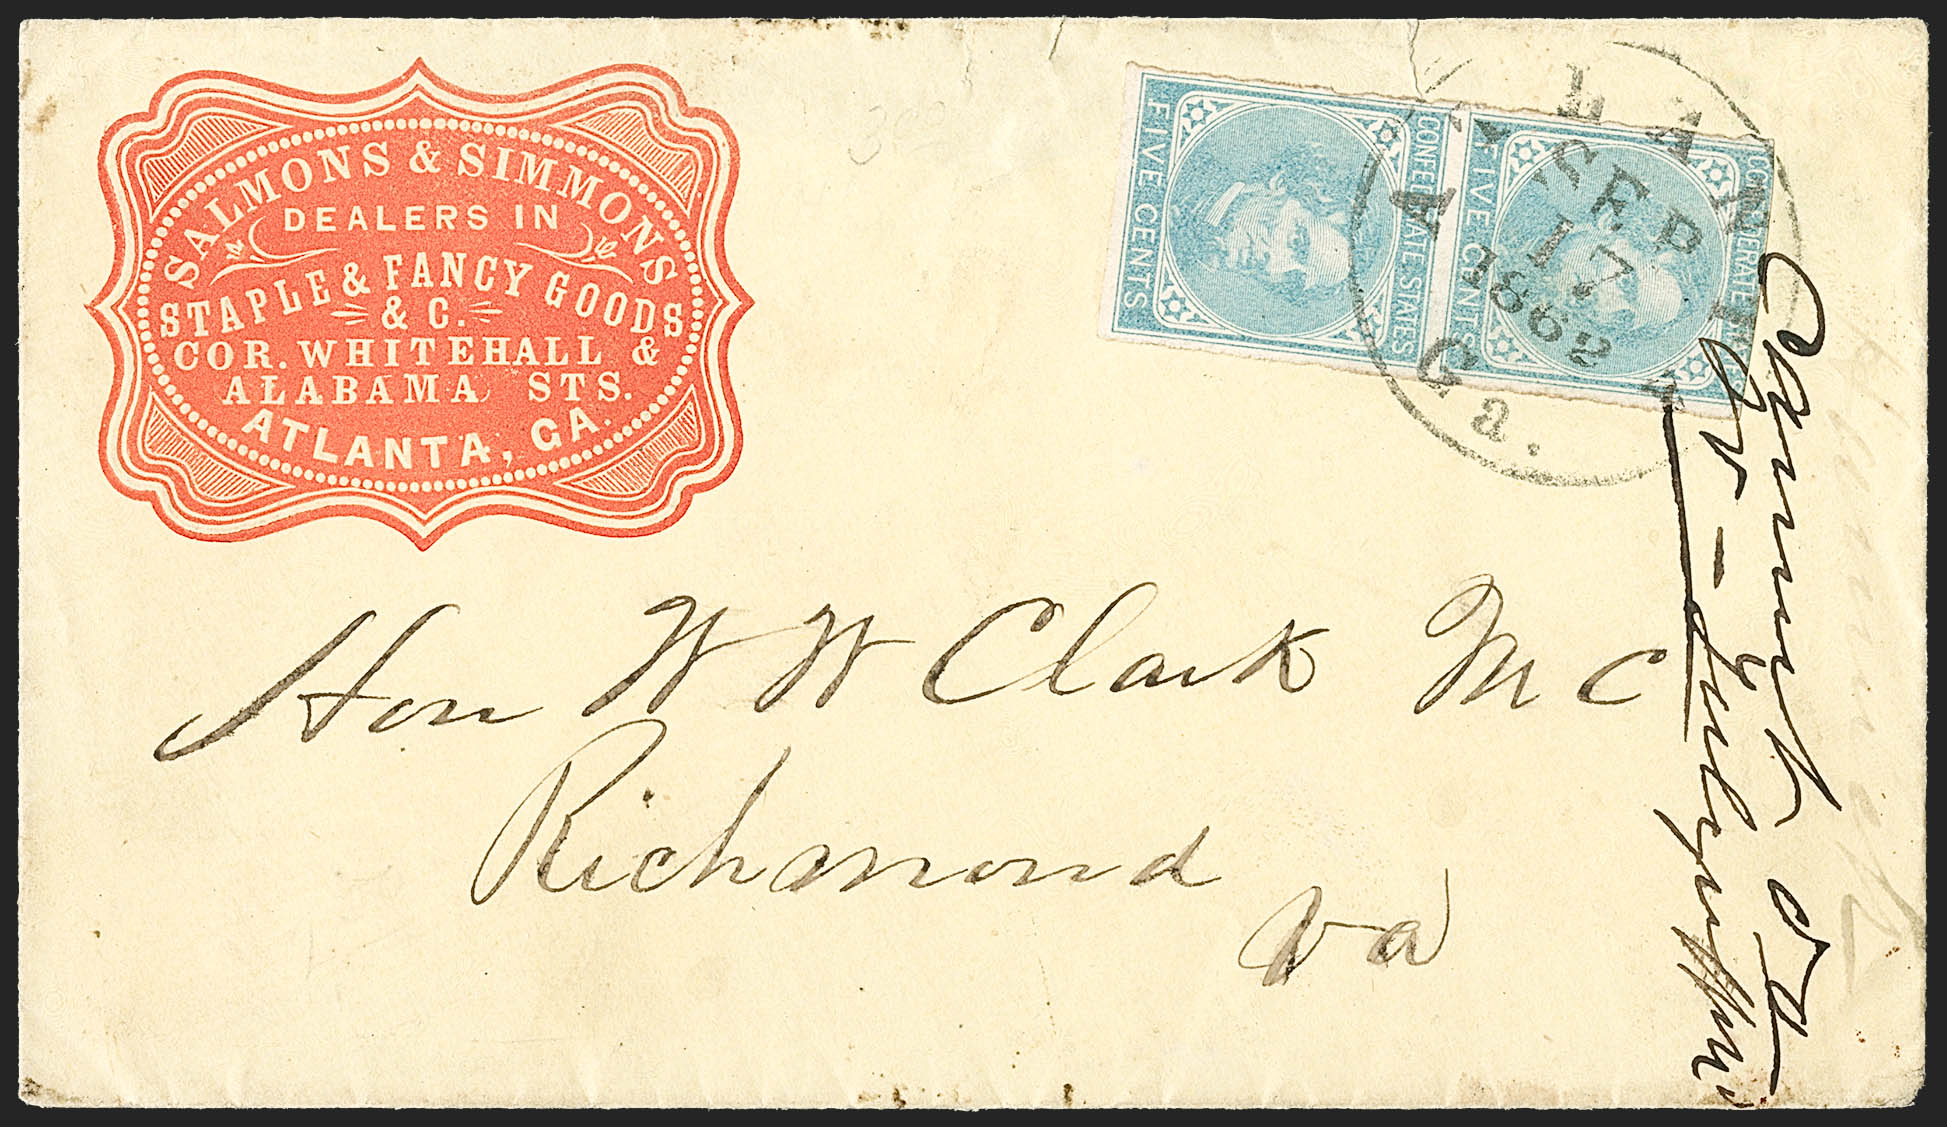 SALMONS & SIMMONS
DEALERS IN
STAPLE & FANCY GOODS
& C.
COR. WHITEHALL &
ALABAMA STS.
ATLANTA, GA.
300
FIVE CENTS
CONFEDERATE STATES
FIVE CENTS
CONFEDERATE
ATLANTA
SEP
17
1862
Ga.
Hon W W Clark M C
Richmond
Va